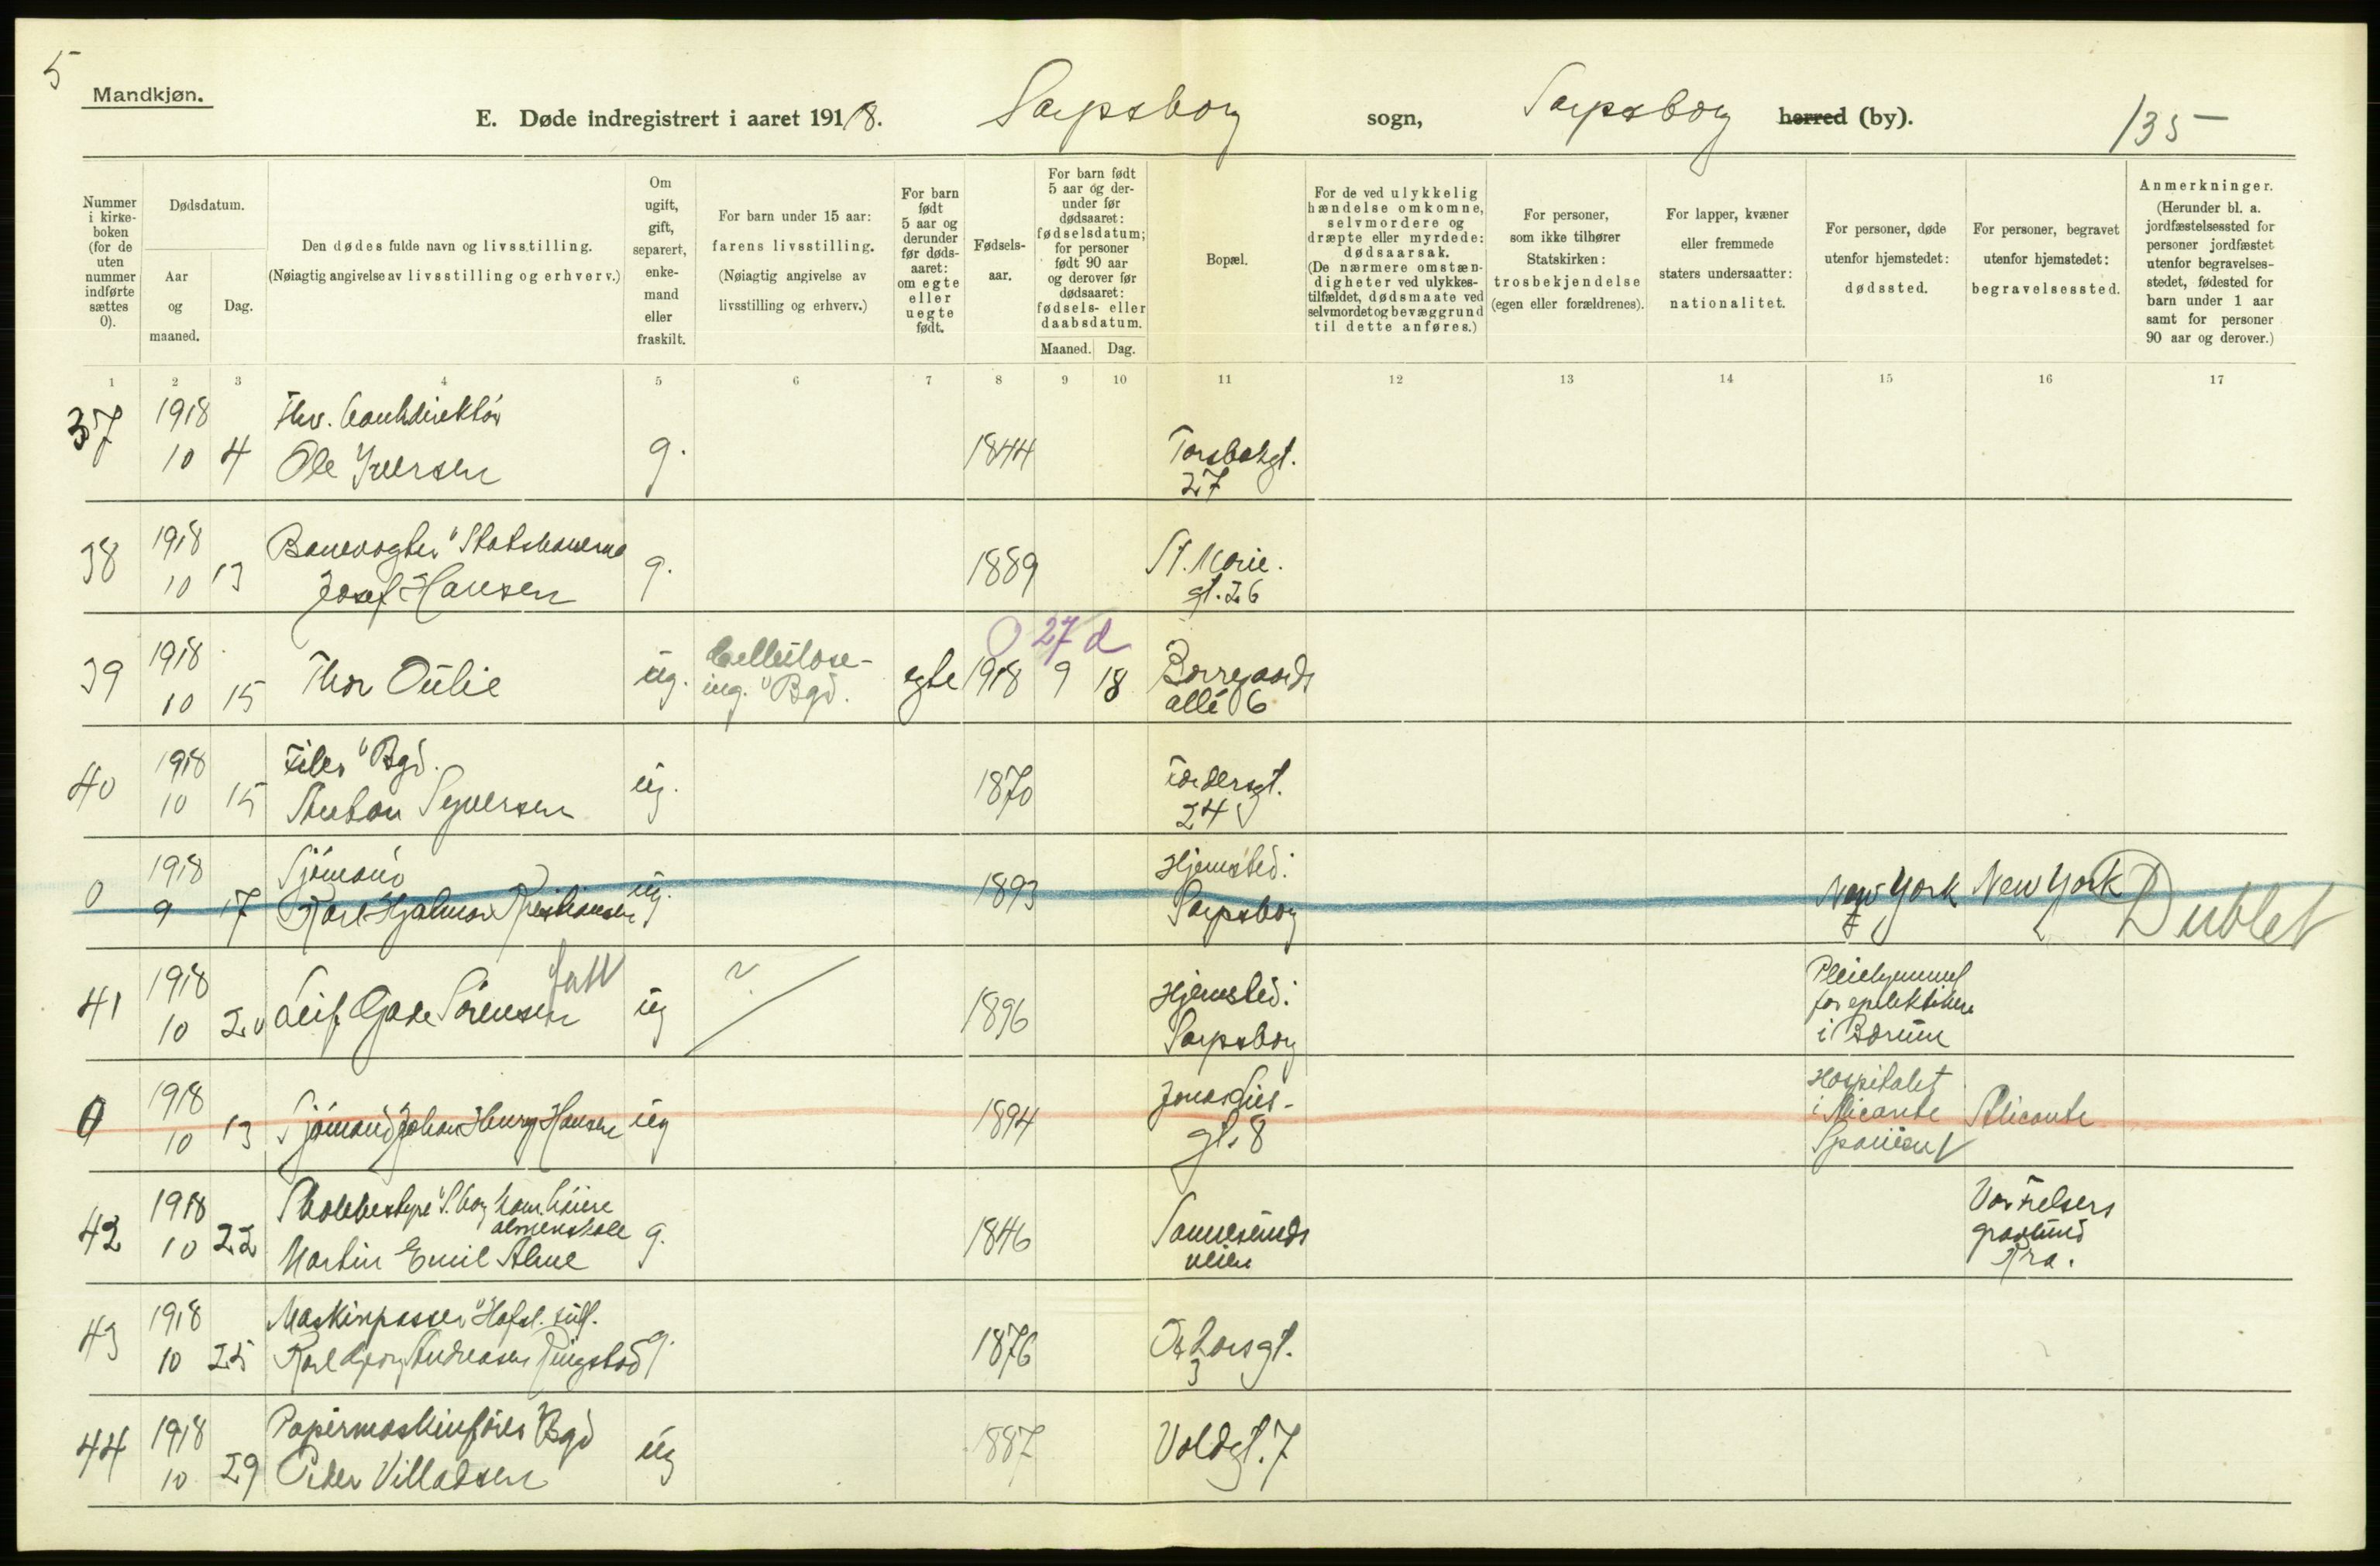 5
Mandkjøn.
E. Døde indregistrert i aaret 1918. Sarpsborg sogn, Sarpsborg herred (by). 135
Nummer i kirkeboken (for de uten nummer indførte sættes 0).
Dødsdatum.
Aar og maaned.
Dag.
Den dødes fulde navn og livsstilling.
(Nøiagtig angivelse av livsstilling og erhverv.)
Om ugift, gift, separert, enkemand eller fraskilt.
For barn under 15 aar:
farens livsstilling.
(Nøiagtig angivelse av livsstilling og erhverv.)
For barn født 5 aar og derunder før dødsaaret: om egte eller uegte født.
Fødselsaar.
For barn født 5 aar og derunder før dødsaaret: fødselsdatum; for personer født 90 aar og derover før dødsaaret: fødsels- eller daabsdatum.
Maaned. Dag.
Bopæl.
For de ved ulykkelig hændelse omkomne, selvmordere og dræpte eller myrdede: dødsaarsak.
(De nærmere omstændigheter ved ulykkestilfældet, dødsmaate ved selvmordet og bevæggrund til dette anføres.)
For personer, som ikke tilhører Statskirken: trosbekjendelse (egen eller forældrenes).
For lapper, kvæner eller fremmede staters undersaatter: nationalitet.
For personer, døde utenfor hjemstedet: dødssted.
For personer, begravet utenfor hjemstedet: begravelsessted.
Anmerkninger.
(Herunder bl. a. jordfæstelsessted for personer jordfæstet utenfor begravelsesstedet, fødested for barn under 1 aar samt for personer 90 aar og derover.)
1 2 3 4 5 6 7 8 9 10 11 12 13 14 15 16 17
37 1918 10 4 Fhv. bankdirektør
Ole Iversen g. 1844 Torsbekgt. 27
38 1918 10 13 Banevogter v Statsbanerne
Josef Hansen g. 1889 St. Marie. gt. 26
0 27 d
39 1918 10 15 Thor Oulie ug. Cellulose-
ing. v Bgd. egte 1918 9 18 Borregaards
allé 6
40 1918 10 15 Filer v Bgd.
Anton Syversen ug. 1870 24
0 1918 9 17 Sjømand
Karl Hjalmar Kristiansen ug. 1893 Hjemsted:
Sarpsborg New York New York Dublet
41 1918 10 20 Leif Gade Sörensen ug ? 1896 Hjemsted:
Sarpsborg Pleiehjemmet
for epilektikere
i Bærum
0 1918 10 13 Sjømand Johan Henry Hansen ug 1894 Jonas Lies-
gt. 8 Hospitalet
i Alicante
Spanien Alicante
42 1918 10 22 Skolebestyrer v S.borg kom. høiere
almenskole
Martin Emil Alme g. 1846 Sannesunds
veien Vor Frelsers
gravlund
Kra.
43 1918 10 25 Maskinpasser v Hafsl. sulf.
Karl Georg Andreasen Ringstad g. 1876 3
44 1918 10 29 Papirmaskinfører v Bgd
Peder Villadsen ug 1887 Voldgt. 7